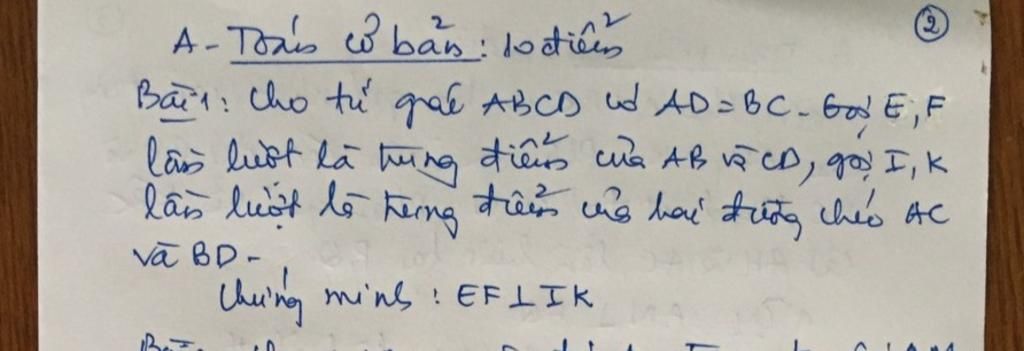 ②
A - Toán cơ bản: 10 điểm
Bài 1: Cho tứ giác ABCD có AD = BC. Gọi E, F
lần lượt là trung điểm của AB và CD, gọi I, K
lần lượt là trung điểm của hai đường chéo AC
và BD -
Chứng minh: EF ⊥ IK